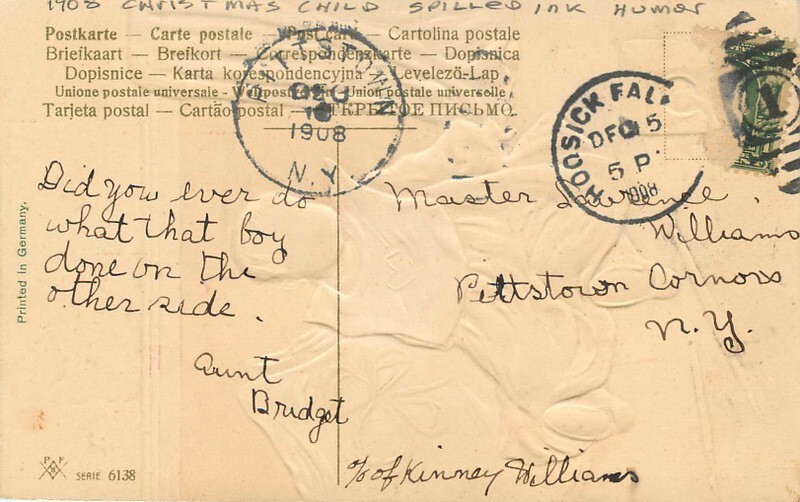 1908 CHRISTMAS CHILD SPILLED INK HUMOR
Postkarte — Carte postale — Post card — Cartolina postale
Briefkaart — Brefkort — Correspondenzkarte — Dopisnica
Dopisnice — Karta korespondencyjna — Levelező-Lap
Unione postale universale - Weltpostverein - Union postale universelle
Tarjeta postal — Cartão postal — ОТКРЫТОЕ ПИСЬМО.
PITTSTOWN
DEC
1908
N.Y.
HOOSICK FALLS
DEC 15
5 P.
1908
1
Did you ever do
what that boy
done on the
other side.
Aunt
Bridget
Master Lawrence
Williams
Pittstown Corners
N.Y.
c/o of Kinney Williams
Printed in Germany.
P F B
SERIE 6138